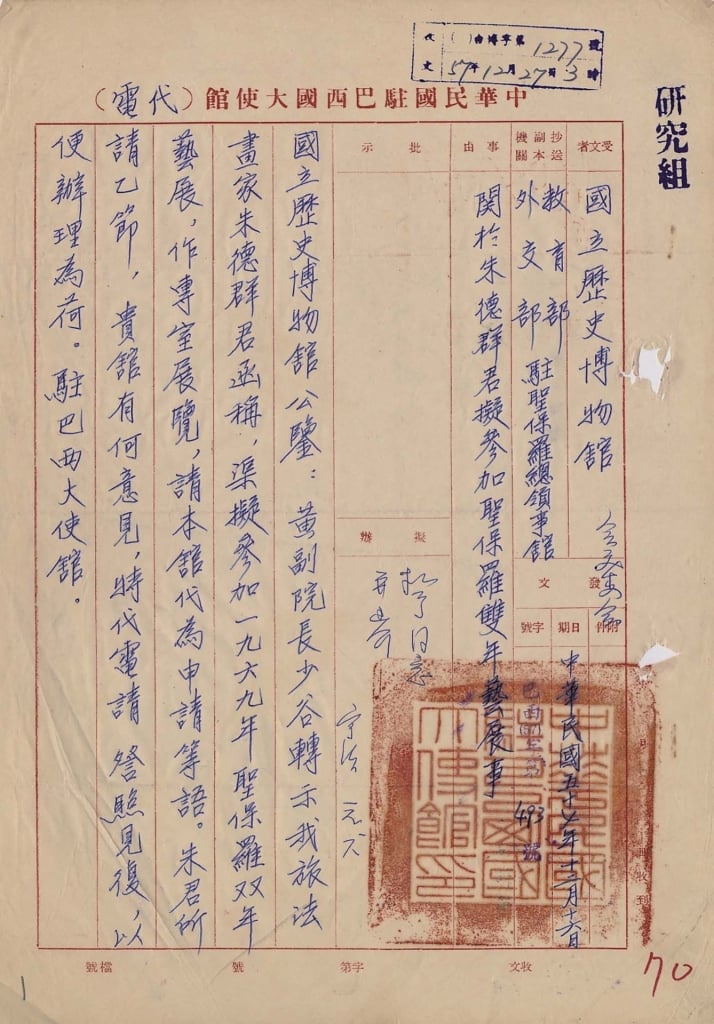 收文 (  )台博字第1277號
57年12月27日3時
研究組
中華民國駐巴西國大使館（代電）
受文者
國立歷史博物館
抄送副本機關
教育部
外交部
駐聖保羅總領事館
發文
附件
日期
字號
中華民國五十七年十二月十六日
巴西(57)字第493號
事由
関於朱德群君擬參加聖保羅雙年藝展事
中華民國駐巴西國大使館印
批示
擬辦
擬予同意
國立歷史博物舘公鑒：黃副院長少谷轉示我旅法
畫家朱德群君函稱，渠擬參加一九六九年聖保羅双年
藝展，作專室展覽，請本舘代為申請等語。朱君所
請乙節，貴舘有何意見，特代電請 詧照見復，以
便辦理為荷。駐巴西大使舘。
收文 字第 號
檔號
70
1